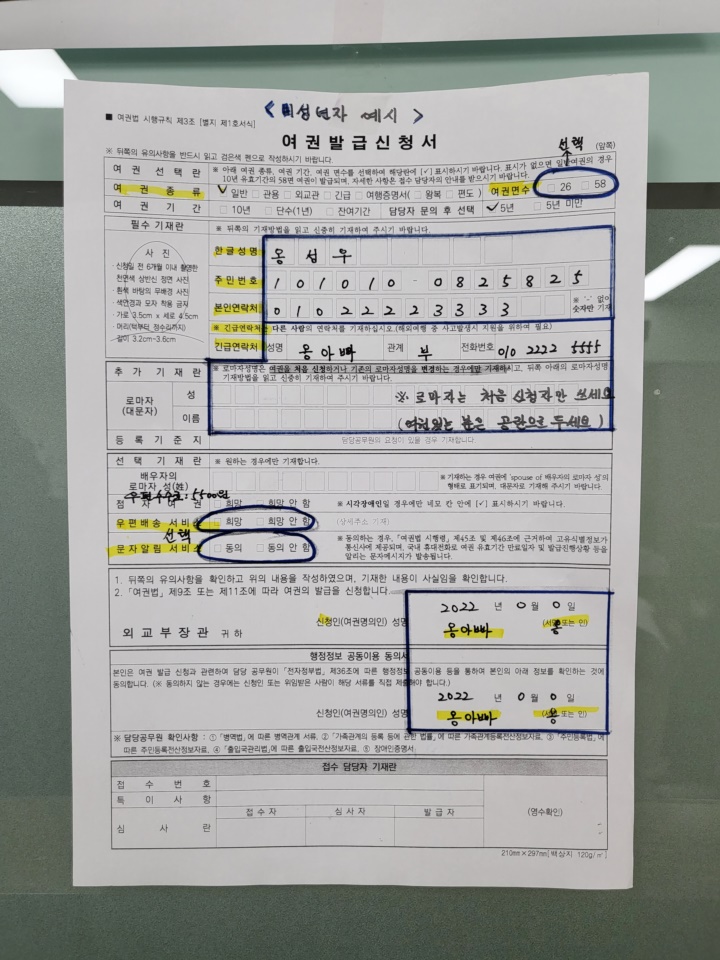 < 미성년자 예시 >
■ 여권법 시행규칙 제3조 [별지 제1호서식]
여권발급신청서
선택
(앞쪽)
※ 뒤쪽의 유의사항을 반드시 읽고 검은색 펜으로 작성하시기 바랍니다.
여권선택란 ※ 아래 여권 종류, 여권 기간, 여권 면수를 선택하여 해당란에 [√] 표시하시기 바랍니다. 표시가 없으면 일반여권의 경우
10년 유효기간의 58면 여권이 발급되며, 자세한 사항은 접수 담당자의 안내를 받으시기 바랍니다.
여권종류 √일반 □관용 □외교관 □긴급 □여행증명서(□왕복 □편도) 여권면수 □26 □58
여권기간 □10년 □단수(1년) □잔여기간 담당자 문의 후 선택 √5년 □5년 미만
필수 기재란 ※ 뒤쪽의 기재방법을 읽고 신중히 기재하여 주시기 바랍니다.
사진
· 신청일 전 6개월 이내 촬영한
천연색 상반신 정면 사진
· 흰색 바탕의 무배경 사진
· 색안경과 모자 착용 금지
· 가로 3.5cm x 세로 4.5cm
· 머리(턱부터 정수리까지)
길이 3.2cm~3.6cm
한글성명 옹 섭 우
주민번호 1 0 1 0 1 0 - 0 8 2 5 8 2 5
본인연락처 0 1 0 2 2 2 2 3 3 3 3 ※ '-' 없이
숫자만 기재
※ 긴급연락처는 다른 사람의 연락처를 기재하십시오.(해외여행 중 사고발생시 지원을 위하여 필요)
긴급연락처 성명 옹아빠 관계 부 전화번호 010 2222 5555
추가 기재란 ※ 로마자성명은 여권을 처음 신청하거나 기존의 로마자성명을 변경하는 경우에만 기재하시고, 뒤쪽 아래의 로마자성명
기재방법을 읽고 신중히 기재하여 주시기 바랍니다.
로마자
(대문자)
성 ※ 로마자는 처음 신청자만 쓰세요
이름 (여권있는 분은 공란으로 두세요)
등록기준지 담당공무원의 요청이 있을 경우 기재합니다.
선택 기재란 ※ 원하는 경우에만 기재합니다.
배우자의
로마자 성(姓)
※ 기재하는 경우 여권에 'spouse of 배우자의 로마자 성'의
형태로 표기되며, 대문자로 기재해 주시기 바랍니다.
우편수수료: 5500원
점자여권 □희망 □희망 안 함 ※ 시각장애인일 경우에만 네모 칸 안에 [√] 표시하시기 바랍니다.
우편배송 서비스 □희망 □희망 안 함 (상세주소 기재)
선택
문자알림 서비스 □동의 □동의 안 함 ※ 동의하는 경우, 「여권법 시행령」 제45조 및 제46조에 근거하여 고유식별정보가
통신사에 제공되며, 국내 휴대전화로 여권 유효기간 만료일자 및 발급진행상황 등을
알리는 문자메시지가 발송됩니다.
1. 뒤쪽의 유의사항을 확인하고 위의 내용을 작성하였으며, 기재한 내용이 사실임을 확인합니다.
2. 「여권법」 제9조 또는 제11조에 따라 여권의 발급을 신청합니다.
2022 년 0 월 0 일
신청인(여권명의인) 성명 옹아빠 옹 (서명 또는 인)
외교부장관 귀하
행정정보 공동이용 동의서
본인은 여권 발급 신청과 관련하여 담당 공무원이 「전자정부법」 제36조에 따른 행정정보 공동이용 등을 통하여 본인의 아래 정보를 확인하는 것에
동의합니다. (※ 동의하지 않는 경우에는 신청인 또는 위임받은 사람이 해당 서류를 직접 제출해야 합니다.)
2022 년 0 월 0 일
신청인(여권명의인) 성명 옹아빠 옹 (서명 또는 인)
※ 담당공무원 확인사항 : ① 「병역법」에 따른 병역관계 서류, ② 「가족관계의 등록 등에 관한 법률」에 따른 가족관계등록전산정보자료, ③ 「주민등록법」에
따른 주민등록전산정보자료, ④ 「출입국관리법」에 따른 출입국전산정보자료, ⑤ 장애인증명서
접수 담당자 기재란
접수번호
특이사항
심사란 접수자 심사자 발급자 (영수확인)
210㎜×297㎜[백상지 120g/㎡]